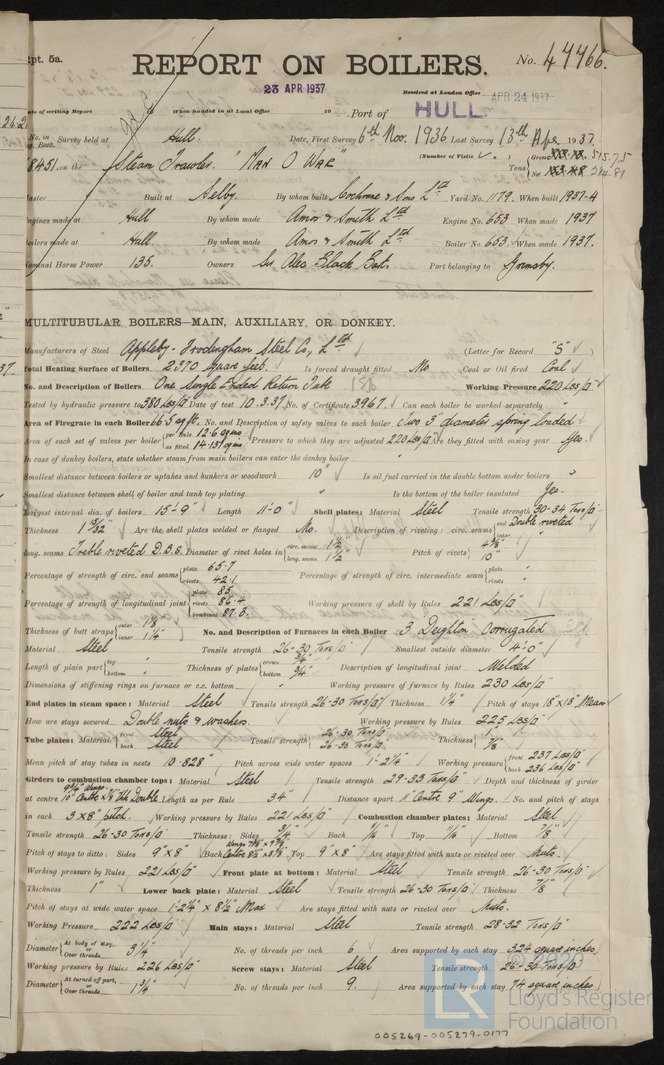 Rpt. 5a.
REPORT ON BOILERS.
No. 47766.
23 APR 1937
Received at London Office APR 24 1937
Date of writing Report When handed in at Local Office 19 Port of HULL.
No. in Reg. Book. Survey held at Hull. Date, First Survey 6th Nov. 1936 Last Survey 13th Apr. 1937
8451 on the Steam Trawler. "Man O War" (Number of Visits) Tons Gross 515.75 Net
Master Built at Selby. By whom built Cochrane & Sons Ltd Yard No. 1179. When built 1937-4
Engines made at Hull By whom made Amos & Smith Ltd Engine No. 653 When made 1937
Boilers made at Hull By whom made Amos & Smith Ltd Boiler No. 653. When made 1937.
Nominal Horse Power 135. Owners Sir Alec Black Bart. Port belonging to Grimsby.
MULTITUBULAR BOILERS—MAIN, AUXILIARY, OR DONKEY.
Manufacturers of Steel Appleby-Frodingham Steel Co., Ltd (Letter for Record "S")
Total Heating Surface of Boilers 2370 square feet. Is forced draught fitted No Coal or Oil fired Coal
No. and Description of Boilers One single ended Return Tube Working Pressure 220 Lbs/□"
Tested by hydraulic pressure to 380 Lbs/□" Date of test 10.3.37 No. of Certificate 3967. Can each boiler be worked separately "
Area of Firegrate in each Boiler 66.5 sq ft. No. and Description of safety valves to each boiler Two 3" diameter spring loaded
Area of each set of valves per boiler per Rule 12.6 sq ins as fitted 14.137 sq ins Pressure to which they are adjusted 220 Lbs/□" Are they fitted with easing gear Yes.
In case of donkey boilers, state whether steam from main boilers can enter the donkey boiler "
Smallest distance between boilers or uptakes and bunkers or woodwork 10" Is oil fuel carried in the double bottom under boilers "
Smallest distance between shell of boiler and tank top plating " Is the bottom of the boiler insulated Yes.
Largest internal dia. of boilers 15'-9" Length 11'-0" Shell plates: Material Steel Tensile strength 30-34 Tons/□"
Thickness 1 5/32" Are the shell plates welded or flanged No. Description of riveting: circ. seams end Double riveted inter. "
long. seams Treble riveted D.B.S. Diameter of rivet holes in circ. seams 1½" long. seams 1½" Pitch of rivets 4 3/8" 10"
Percentage of strength of circ. end seams plate 65.7 rivets 42.1 Percentage of strength of circ. intermediate seam plate " rivets "
Percentage of strength of longitudinal joint plate 85 rivets 86.4 combined 87.3. Working pressure of shell by Rules 221 Lbs/□"
Thickness of butt straps outer inner 1¼" No. and Description of Furnaces in each Boiler 3 Deighton Corrugated
Material Steel Tensile strength 26-30 Tons/□" Smallest outside diameter 4'-0"
Length of plain part top " bottom " Thickness of plates crown ¾" bottom ¾" Description of longitudinal joint Welded
Dimensions of stiffening rings on furnace or c.c. bottom " Working pressure of furnace by Rules 230 Lbs/□"
End plates in steam space: Material Steel Tensile strength 26-30 Tons/□" Thickness 1¼" Pitch of stays 18"x18" Mean
How are stays secured Double nuts & washers. Working pressure by Rules 225 Lbs/□"
Tube plates: Material front Steel back Steel Tensile strength 26-30 Tons/□" 26-30 Tons/□" Thickness 1" 7/8"
Mean pitch of stay tubes in nests 10.828" Pitch across wide water spaces 1'-2¼" Working pressure front 237 Lbs/□" back 236 Lbs/□"
Girders to combustion chamber tops: Material Steel Tensile strength 29-33 Tons/□" Depth and thickness of girder
at centre 9¾" Wings 10" Centre Double Length as per Rule 34" Distance apart Centre 9" Wings. No. and pitch of stays
in each 3 x 8" pitch. Working pressure by Rules 221 Lbs/□" Combustion chamber plates: Material Steel
Tensile strength 26-30 Tons/□" Thickness: Sides ¾" Back 11/16" Top 11/16" Bottom 7/8"
Pitch of stays to ditto: Sides 9"x8" Back Wings Centre Top 9"x8" Are stays fitted with nuts or riveted over Nuts.
Working pressure by Rules 221 Lbs/□" Front plate at bottom: Material Steel Tensile strength 26-30 Tons/□"
Thickness 1" Lower back plate: Material Steel Tensile strength 26-30 Tons/□" Thickness 7/8"
Pitch of stays at wide water space 1'-2¼" x 8½" Max Are stays fitted with nuts or riveted over Nuts.
Working Pressure 222 Lbs/□" Main stays: Material Steel Tensile strength 28-32 Tons/□"
Diameter At body of stay, or Over threads 3¼" No. of threads per inch 6 Area supported by each stay 324 square inches
Working pressure by Rules 226 Lbs/□" Screw stays: Material Steel Tensile strength 26-30 Tons/□"
Diameter At turned off part, or Over threads 1¾" No. of threads per inch 9. Area supported by each stay 74 square inches
© 2020
LR Lloyd's Register Foundation
005269-005279-0177